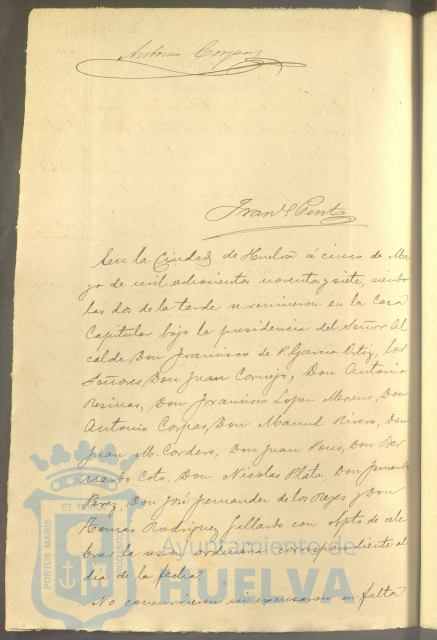 Antonio Corpas
Fran.co Pinto
En la Ciudad de Huelva á cinco de Ma
yo de mil ochocientos noventa y siete, siendo
las dos de la tarde se reunieron en la Casa
Capitular bajo la presidencia del Señor Al
calde Don Francisco de P. Garcia Ortiz, los
Señores Don Juan Cornejo, Don Antonio
Resinas, Don Francisco Lopez Moreno, Don
Antonio Corpas, Don Manuel Rivero, Don
Juan M. Cordero, Don Juan Pons, Don Ber
nardo Coto, Don Nicolas Plata, Don Fernando
Perez, Don José Fernandez de los Reyes y Don
Tomás Rodriguez Gallardo con objeto de cele
brar la sesion ordinaria correspondiente al
dia de la fecha.
No concurrieron ni excusaron su falta
PORTUS MARIS
ET TERRÆ
CUSTODIA
Ayuntamiento de
HUELVA